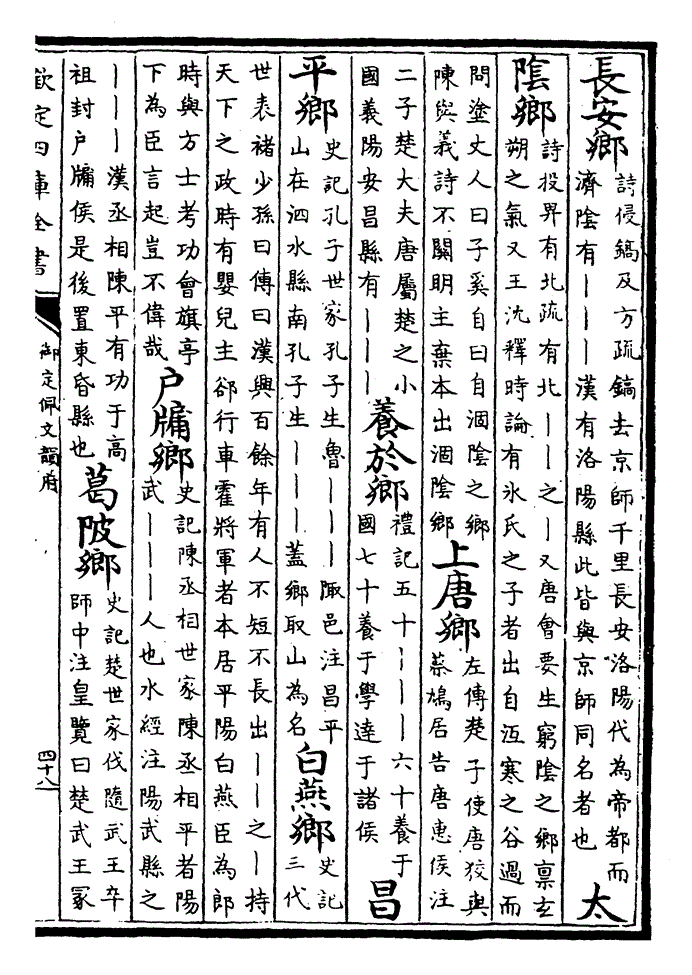 長安鄉
詩侵鎬及方疏鎬去京師千里長安洛陽代為帝都而
濟陰有丨丨丨漢有洛陽縣此皆與京師同名者也
太
陰鄉
詩投畀有北疏有北丨丨之丨又唐會要生窮陰之鄉禀玄
朔之氣又王沈釋時論有氷氏之子者出自沍寒之谷過而
問塗丈人曰子奚自曰自涸陰之鄉
陳與義詩不關明主棄本出涸陰鄉
上唐鄉
左傳楚子使唐狡與
蔡鳩居告唐惠侯注
二子楚大夫唐屬楚之小
國義陽安昌縣有丨丨丨
養於鄉
禮記五十丨丨丨六十養于
國七十養于學達于諸侯
昌
平鄉
史記孔子世家孔子生魯丨丨丨陬邑注昌平
山在泗水縣南孔子生丨丨丨蓋鄉取山為名
白燕鄉
史記
三代
世表褚少孫曰傳曰漢興百餘年有人不短不長出丨丨之丨持
天下之政時有嬰兒主郤行車霍將軍者本居平陽白燕臣為郎
時與方士考功會旗亭
下為臣言起豈不偉哉
戶牖鄉
史記陳丞相世家陳丞相平者陽
武丨丨丨人也水經注陽武縣之
丨丨丨漢丞相陳平有功于高
祖封戶牖侯是後置東昏縣也
葛陂鄉
史記楚世家伐隨武王卒
師中注皇覽曰楚武王冡
欽定四庫全書
御定佩文韻府
四十八